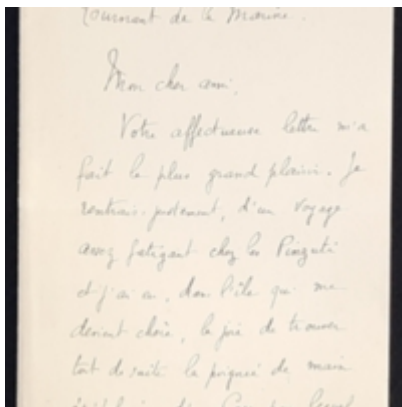 Tournant de la Marine.
Mon cher ami,
Votre affectueuse lettre m'a
fait le plus grand plaisir. Je
rentrais justement, d'un voyage
assez fatigant chez les Pinzuti
et j'ai eu, dans l'île qui me
devient chère, la joie de trouver
tout de suite la poignée de main